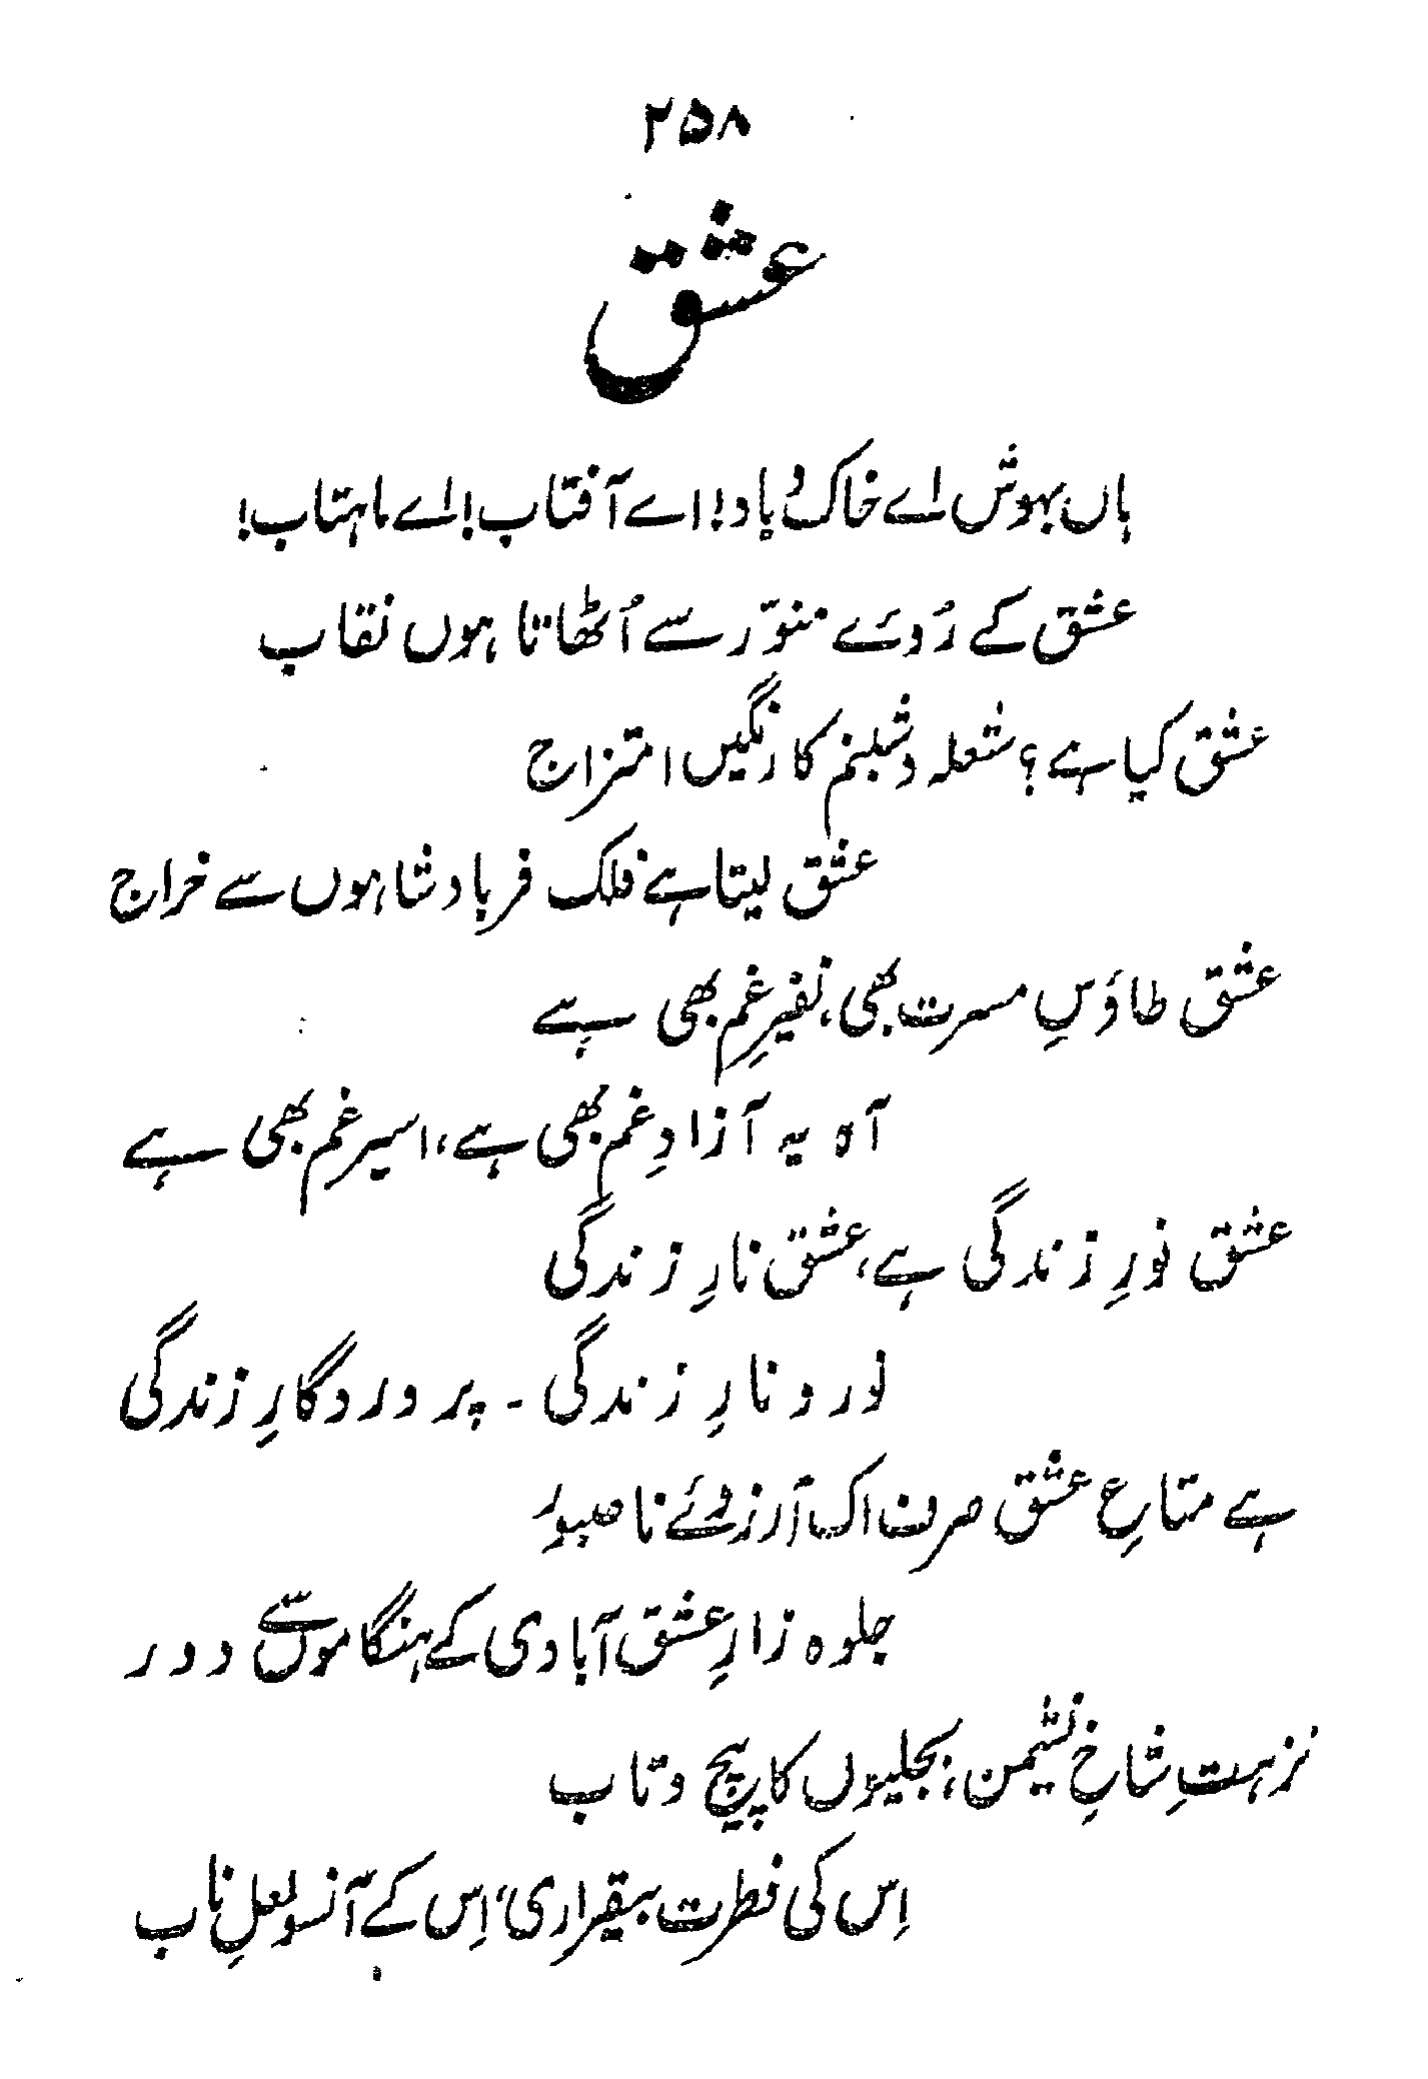 ۲۵۸
عشق
ہاں بہوش اے خاک و باد! اے آفتاب! اے ماہتاب!
عشق کے رُوئے منوّر سے اُٹھاتا ہوں نقاب
عشق کیا ہے؟ شعلہ و شبنم کا رنگیں امتزاج
عشق لیتا ہے فلک فر بادشاہوں سے خراج
عشق طاؤسِ مسرت بھی، نفیرِ غم بھی ہے
آہ یہ آزادِ غم بھی ہے، اسیرِ غم بھی ہے
عشق نورِ زندگی ہے، عشق نارِ زندگی
نور و نارِ زندگی ۔ پروردگارِ زندگی
ہے متاعِ عشق صرف اک آرزوئے ناصبور
جلوہ زارِ عشق آبادی کے ہنگاموں سے دور
نزہتِ شاخِ نشیمن، بجلیوں کا پیچ و تاب
اِس کی فطرت بیقراری، اِس کے آنسو لعلِ ناب